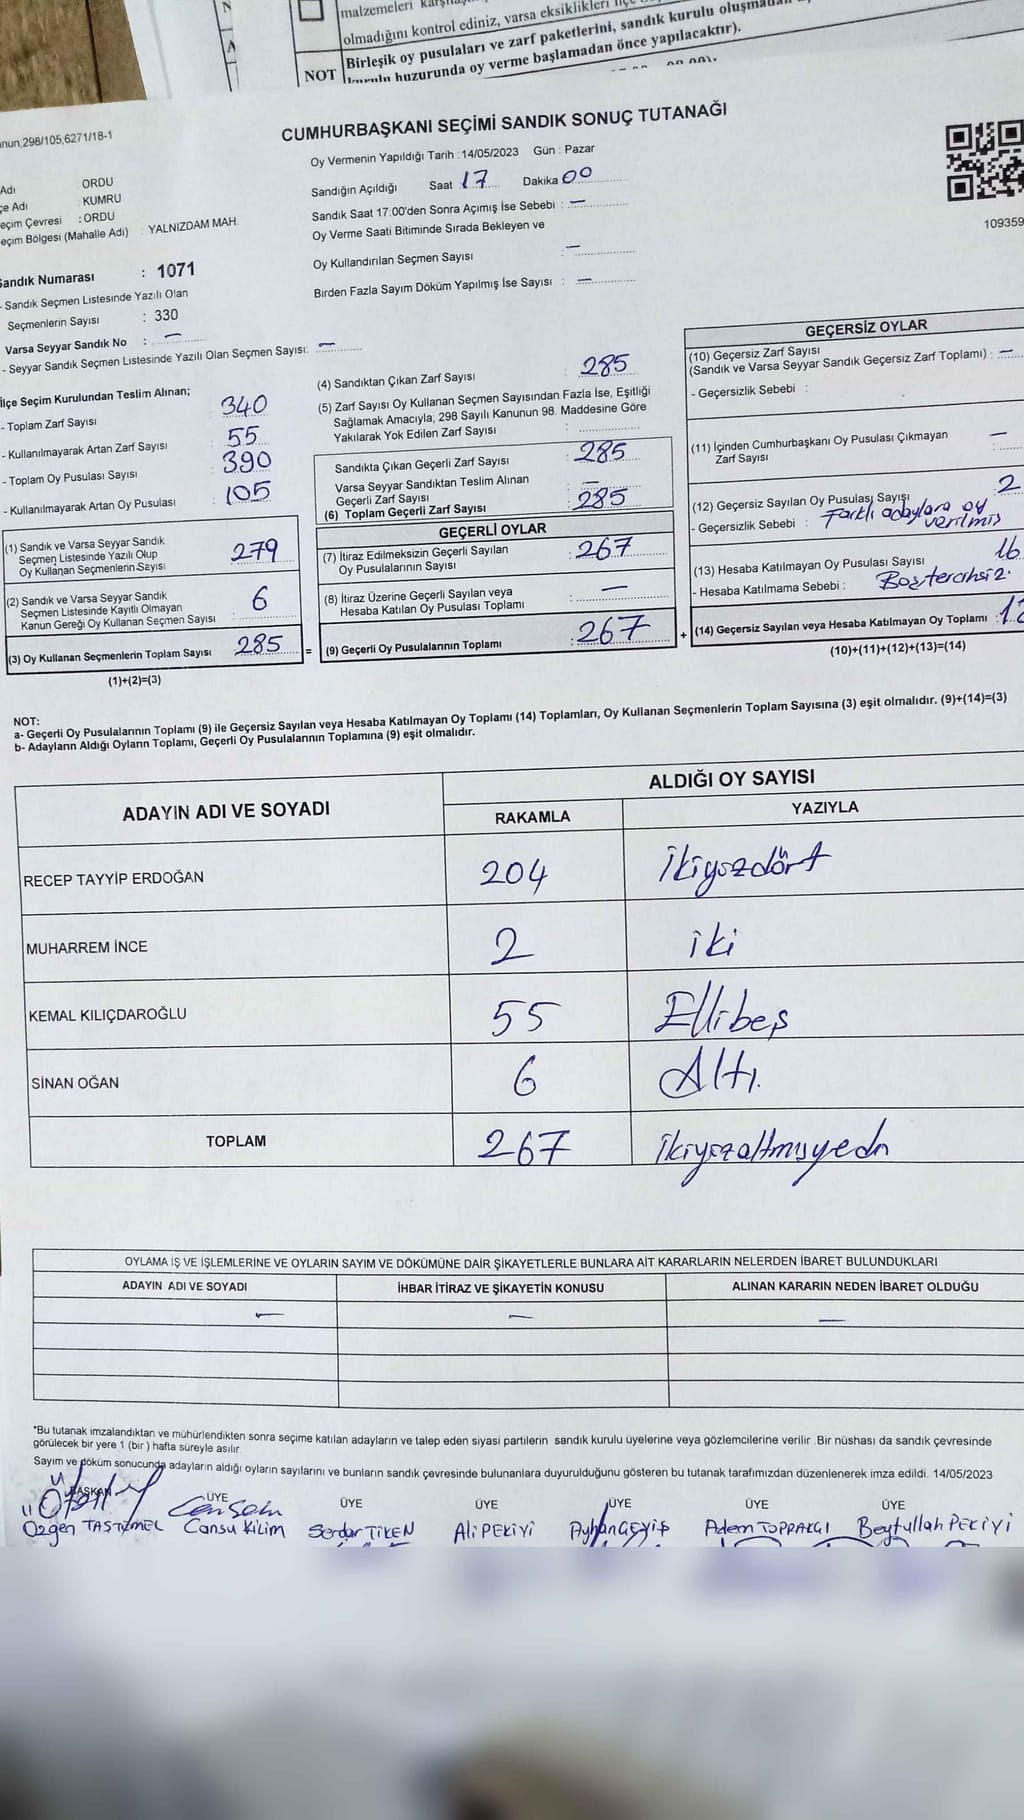 malzemeleri
olmadığını kontrol ediniz, varsa eksiklikleri
NOT Birleşik oy pusulaları ve zarf paketlerini, sandık kurulu
huzurunda oy verme başlamadan önce yapılacaktır).
298/105,6271/18-1
CUMHURBAŞKANI SEÇİMİ SANDIK SONUÇ TUTANAĞI
Oy Vermenin Yapıldığı Tarih : 14/05/2023 Gün : Pazar
Adı ORDU
Adı : KUMRU
eçim Çevresi : ORDU
eçim Bölgesi (Mahalle Adı) : YALNIZDAM MAH.
Sandığın Açıldığı Saat 17 Dakika 00
Sandık Saat 17.00'den Sonra Açımış İse Sebebi : —
Oy Verme Saati Bitiminde Sırada Bekleyen ve
Oy Kullandırılan Seçmen Sayısı : —
Birden Fazla Sayım Döküm Yapılmış İse Sayısı : —
109359
Sandık Numarası : 1071
- Sandık Seçmen Listesinde Yazılı Olan
Seçmenlerin Sayısı : 330
Varsa Seyyar Sandık No : —
- Seyyar Sandık Seçmen Listesinde Yazılı Olan Seçmen Sayısı: —
İlçe Seçim Kurulundan Teslim Alınan;
- Toplam Zarf Sayısı : 340
- Kullanılmayarak Artan Zarf Sayısı : 55
- Toplam Oy Pusulası Sayısı : 390
- Kullanılmayarak Artan Oy Pusulası : 105
(1) Sandık ve Varsa Seyyar Sandık
Seçmen Listesinde Yazılı Olup
Oy Kullanan Seçmenlerin Sayısı : 279
(2) Sandık ve Varsa Seyyar Sandık
Seçmen Listesinde Kayıtlı Olmayan
Kanun Gereği Oy Kullanan Seçmen Sayısı : 6
(3) Oy Kullanan Seçmenlerin Toplam Sayısı 285 =
(1)+(2)=(3)
(4) Sandıktan Çıkan Zarf Sayısı : 285
(5) Zarf Sayısı Oy Kullanan Seçmen Sayısından Fazla İse, Eşitliği
Sağlamak Amacıyla, 298 Sayılı Kanunun 98. Maddesine Göre
Yakılarak Yok Edilen Zarf Sayısı :
Sandıkta Çıkan Geçerli Zarf Sayısı : 285
Varsa Seyyar Sandıktan Teslim Alınan
Geçerli Zarf Sayısı : —
(6) Toplam Geçerli Zarf Sayısı : 285
GEÇERLİ OYLAR
(7) İtiraz Edilmeksizin Geçerli Sayılan
Oy Pusulalarının Sayısı : 267
(8) İtiraz Üzerine Geçerli Sayılan veya
Hesaba Katılan Oy Pusulası Toplamı : —
(9) Geçerli Oy Pusulalarının Toplamı : 267 +
GEÇERSİZ OYLAR
(10) Geçersiz Zarf Sayısı
(Sandık ve Varsa Seyyar Sandık Geçersiz Zarf Toplamı) : —
- Geçersizlik Sebebi :
(11) İçinden Cumhurbaşkanı Oy Pusulası Çıkmayan
Zarf Sayısı : —
(12) Geçersiz Sayılan Oy Pusulası Sayısı 2
- Geçersizlik Sebebi : Farklı adaylara oy
verilmiş
(13) Hesaba Katılmayan Oy Pusulası Sayısı 16
- Hesaba Katılmama Sebebi :
(14) Geçersiz Sayılan veya Hesaba Katılmayan Oy Toplamı :
(10)+(11)+(12)+(13)=(14)
NOT:
a- Geçerli Oy Pusulalarının Toplamı (9) ile Geçersiz Sayılan veya Hesaba Katılmayan Oy Toplamı (14) Toplamları, Oy Kullanan Seçmenlerin Toplam Sayısına (3) eşit olmalıdır. (9)+(14)=(3)
b- Adayların Aldığı Oyların Toplamı, Geçerli Oy Pusulalarının Toplamına (9) eşit olmalıdır.
ADAYIN ADI VE SOYADI
ALDIĞI OY SAYISI
RAKAMLA YAZIYLA
RECEP TAYYİP ERDOĞAN 204 ikiyüzdört
MUHARREM İNCE 2 iki
KEMAL KILIÇDAROĞLU 55 Ellibeş
SİNAN OĞAN 6 Altı.
TOPLAM 267 ikiyüzaltmışyedi
OYLAMA İŞ VE İŞLEMLERİNE VE OYLARIN SAYIM VE DÖKÜMÜNE DAİR ŞİKAYETLERLE BUNLARA AİT KARARLARIN NELERDEN İBARET BULUNDUKLARI
ADAYIN ADI VE SOYADI İHBAR İTİRAZ VE ŞİKAYETİN KONUSU ALINAN KARARIN NEDEN İBARET OLDUĞU
— — —
*Bu tutanak imzalandıktan ve mühürlendikten sonra seçime katılan adayların ve talep eden siyasi partilerin sandık kurulu üyelerine veya gözlemcilerine verilir. Bir nüshası da sandık çevresinde
görülecek bir yere 1 (bir) hafta süreyle asılır.
Sayım ve döküm sonucunda adayların aldığı oyların sayılarını ve bunların sandık çevresinde bulunanlara duyurulduğunu gösteren bu tutanak tarafımızdan düzenlenerek imza edildi. 14/05/2023
BAŞKAN ÜYE ÜYE ÜYE ÜYE ÜYE ÜYE
Özgen TAŞTEMEL Cansu Kilim Serdar TİKEN Ali PEKİYİ Ayhan GEYİŞ Adem TOPRAKÇI Beytullah PEKİYİ